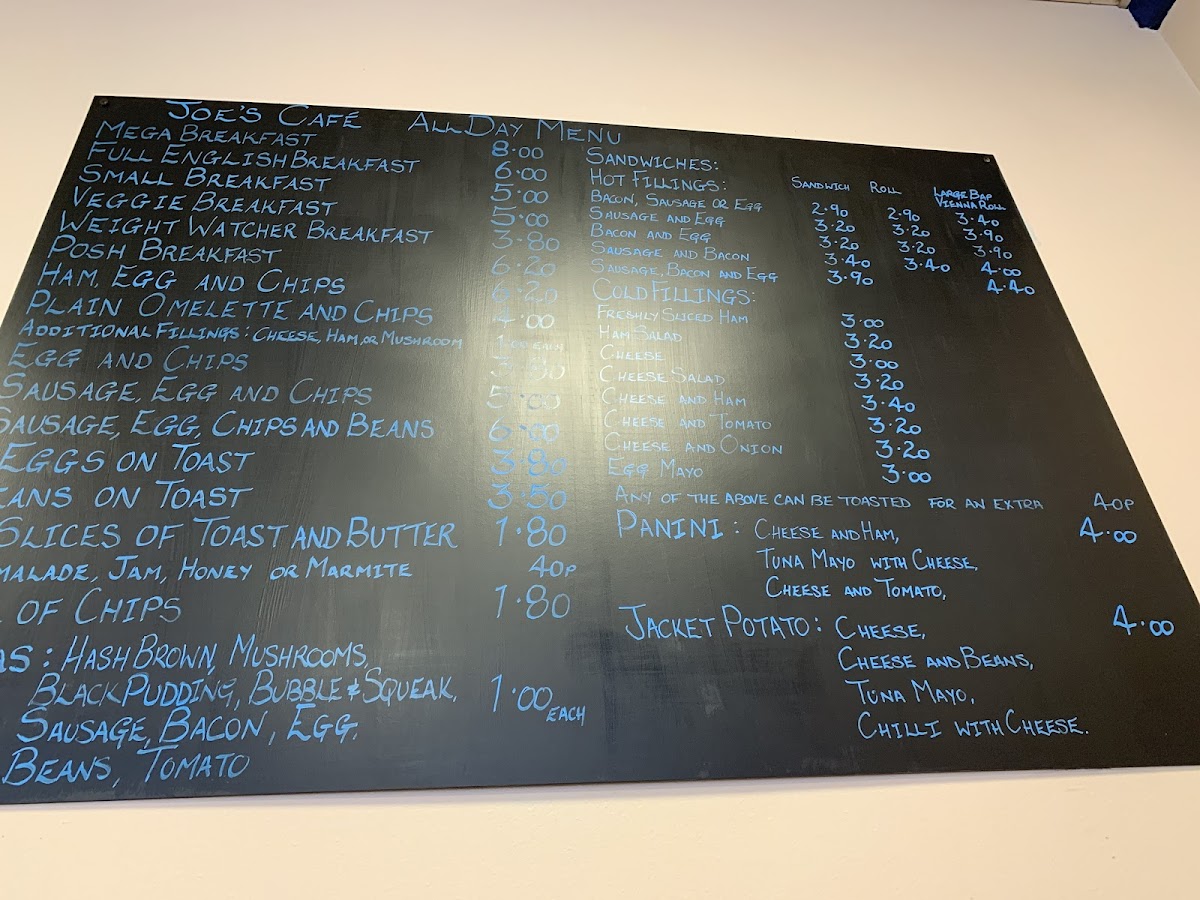 JOE'S CAFÉ ALL DAY MENU
MEGA BREAKFAST 8.00
FULL ENGLISH BREAKFAST 6.00
SMALL BREAKFAST 5.00
VEGGIE BREAKFAST 5.00
WEIGHT WATCHER BREAKFAST 3.80
POSH BREAKFAST 6.20
HAM, EGG AND CHIPS 6.20
PLAIN OMELETTE AND CHIPS 4.00
ADDITIONAL FILLINGS: CHEESE, HAM, OR MUSHROOM 1.00 EACH
EGG AND CHIPS
SAUSAGE, EGG AND CHIPS 5.00
SAUSAGE, EGG, CHIPS AND BEANS 6.00
EGGS ON TOAST 3.80
EANS ON TOAST 3.50
SLICES OF TOAST AND BUTTER 1.80
MALADE, JAM, HONEY OR MARMITE 40P
OF CHIPS 1.80
AS: HASH BROWN, MUSHROOMS,
BLACK PUDDING, BUBBLE & SQUEAK, 1.00 EACH
SAUSAGE, BACON, EGG,
BEANS, TOMATO
SANDWICHES:
HOT FILLINGS: SANDWICH ROLL LARGE BAP
VIENNA ROLL
BACON, SAUSAGE OR EGG 2.90 2.90 3.40
SAUSAGE AND EGG 3.20 3.20 3.90
BACON AND EGG 3.20 3.20 3.90
SAUSAGE AND BACON 3.40 3.40 4.00
SAUSAGE, BACON AND EGG 3.90 4.40
COLD FILLINGS:
FRESHLY SLICED HAM 3.00
HAM SALAD 3.20
CHEESE 3.00
CHEESE SALAD 3.20
CHEESE AND HAM 3.40
CHEESE AND TOMATO 3.20
CHEESE AND ONION 3.20
EGG MAYO 3.00
ANY OF THE ABOVE CAN BE TOASTED FOR AN EXTRA 40P
PANINI: CHEESE AND HAM, 4.00
TUNA MAYO WITH CHEESE,
CHEESE AND TOMATO,
JACKET POTATO: CHEESE, 4.00
CHEESE AND BEANS,
TUNA MAYO,
CHILLI WITH CHEESE.